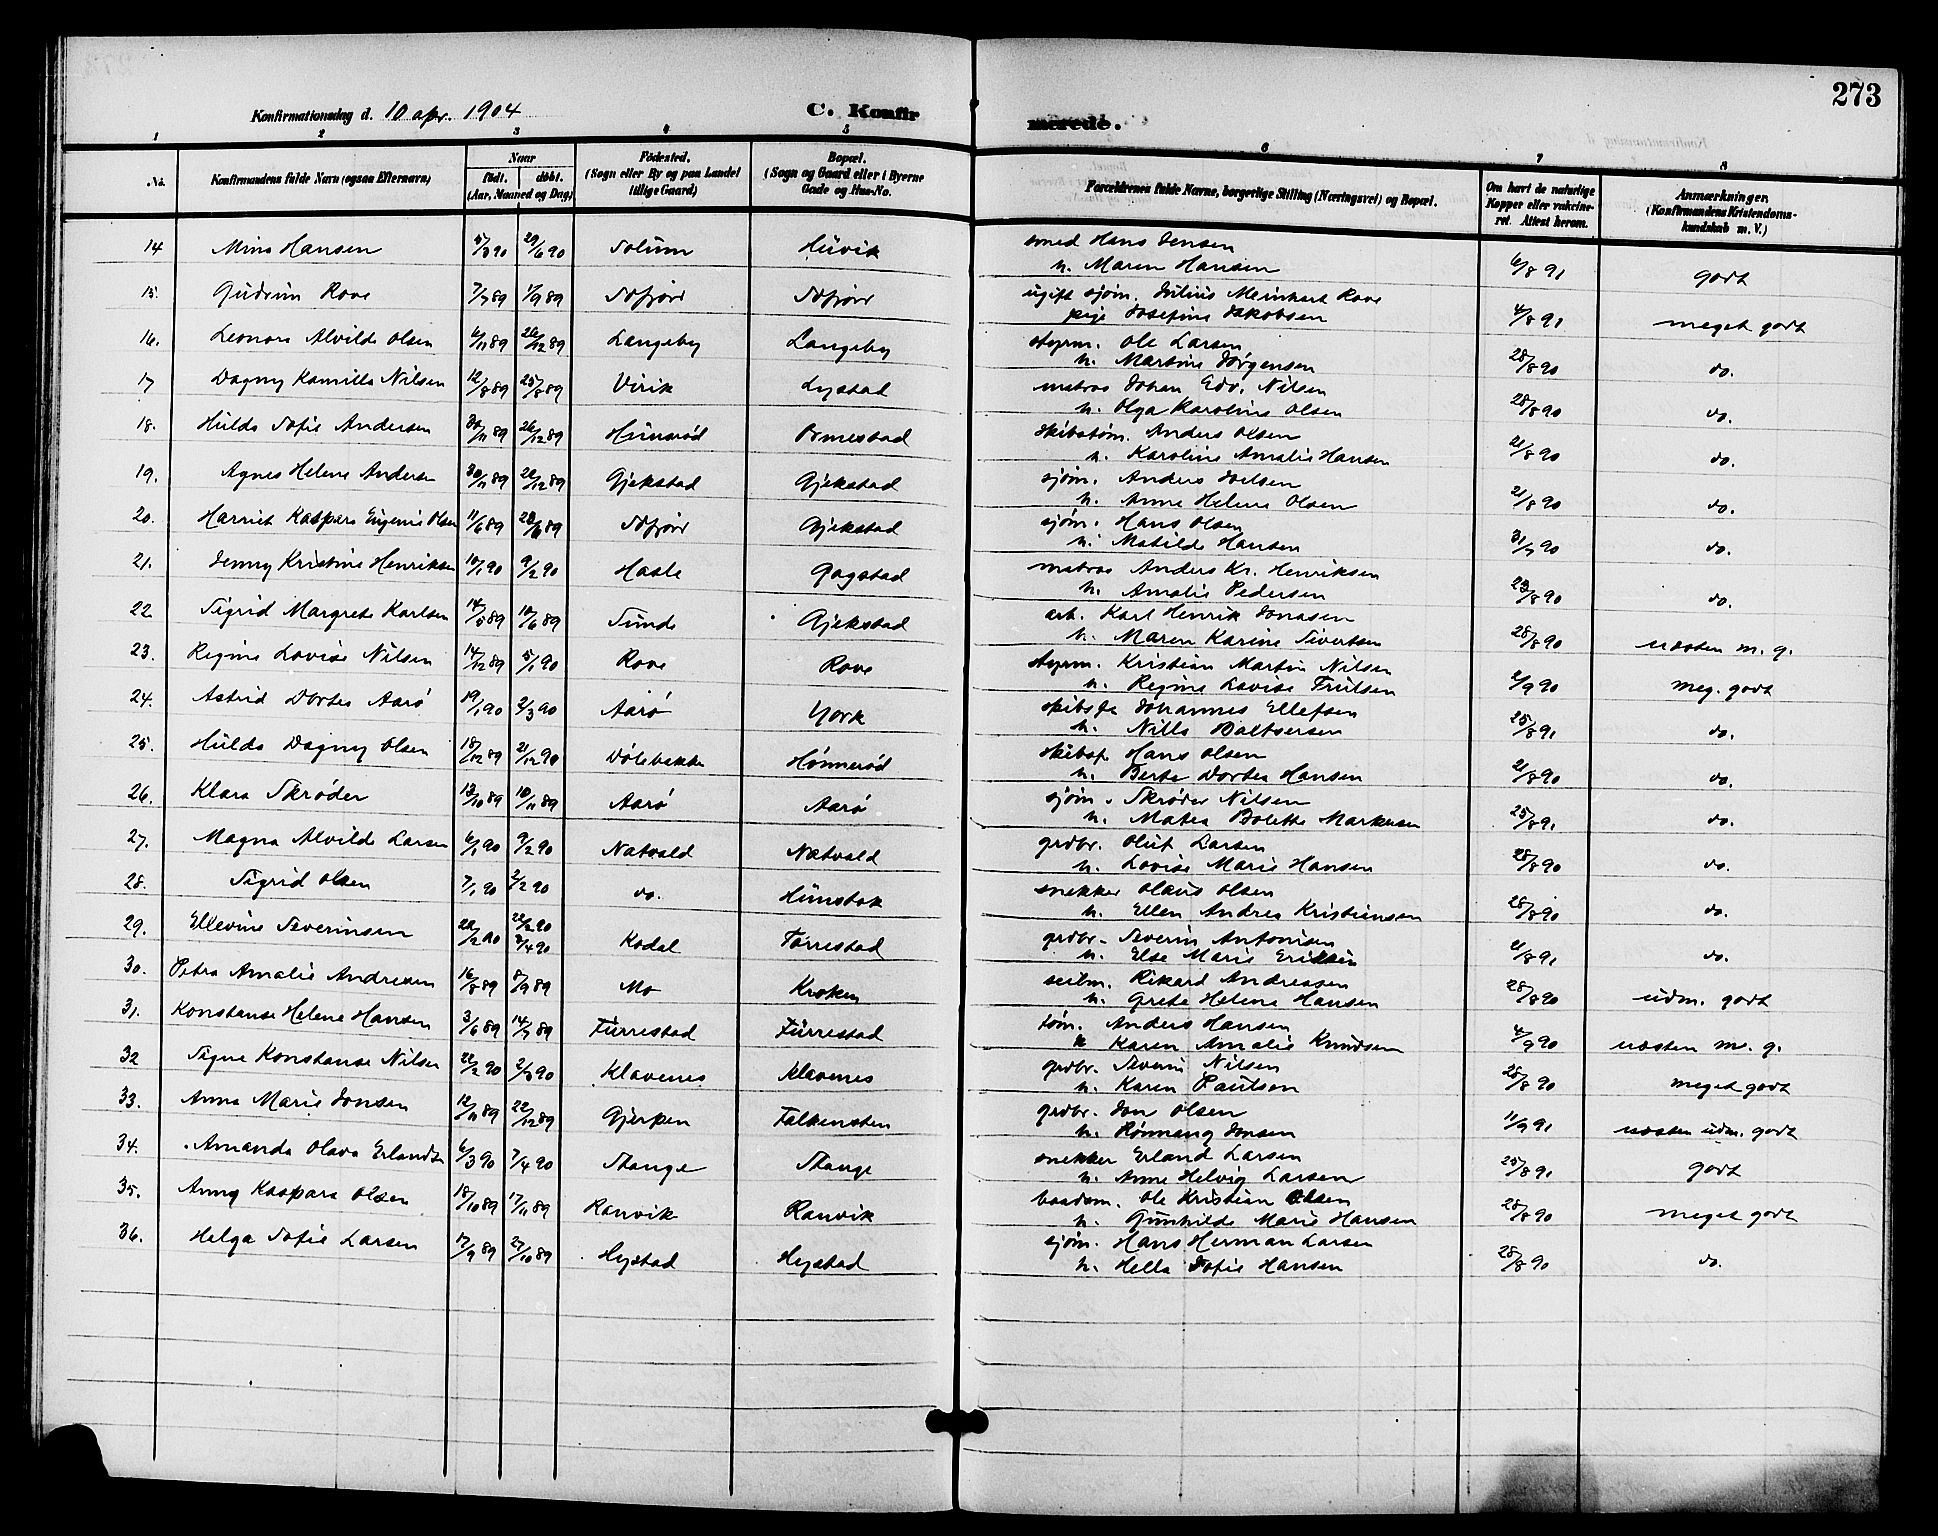 273
Konfirmationsdag d. 10 apr. 1904 C. Konfirmerede.
1 2 3 4 5 6 7 8
No. Konfirmandens fulde Navn (ogsaa Efternavn) Naar født. døbt. (Aar, Maaned og Dag) Fødested. (Sogn eller By og paa Landet tillige Gaard) Bopæl. (Sogn og Gaard eller i Byerne Gade og Hus-No. Forældrenes fulde Navne, borgerlige Stilling (Næringsvei) og Bopæl. Om havt de naturlige Kopper eller vakcineret. Attest herom. Anmærkninger (Konfirmandens Kristendomskundskab m. V.)
14 Mina Hansen 5/3 90 29/6 90 Solum Huvik smed Hans Jensen
h. Maren Hansen 6/8 91 godt
15. Gudrun Rove 7/7 89 1/9 89 Sdfjord Sdfjord ugift sjøm. Julius Meinhart Rove
pige Josefine Jakobsen 4/8 91 meget godt
16. Leonora Alvilde Olsen 6/11 89 26/12 89 Langeby Langeby styrm. Ole Larsen
h. Martine Jørgensen 28/8 90 do.
17 Dagny Kamilla Nilsen 12/8 89 25/8 89 Virik Lystad matros Johan Edv. Nilsen
h. Olga Karoline Olsen 28/8 90 do.
18. Hulda Sofie Andersen 30/11 89 26/12 89 Hunsrød Ormestad skibstøm. Anders Olsen
h. Karoline Amalie Hansen 21/8 90 do.
19. Agnes Helene Andersen 30/11 89 22/12 89 Gjekstad Gjekstad sjøm. Anders
h. Anne Helene Olsen 21/8 90 do.
20. Harriet Kaspara Eugenie Olsen 11/6 89 Sdfjord Gjekstad sjøm. Hans Olsen
h. Matilde Hansen 31/7 90 do.
21. Jenny Kristine Henriksen 10/1 90 9/2 90 Hasle Gogstad matros Anders Kr. Henriksen
h. Amalie Pedersen 28/8 90 do.
22 Sigrid Margrete Karlsen 14/5 89 10/6 89 Sunde Gjekstad arb. Karl Henrik Jonasen
h. Maren Karine Sivertsen 28/8 90 næsten m. g.
23. Regine Lovise Nilsen 14/12 89 5/1 90 Rove Rove styrm. Kristian Martin Nilsen
h. Regine Lovise Trulsen 2/9 90 meg. godt
24. Astrid Dortea Aarø 19/1 90 2/3 90 Aarø York Johannes Ellefsen
h. Nilla Baltsersen 25/8 91 do.
25. Hulda Dagny Olsen 18/12 89 21/12 90 Dølebakke Hønnerød skibsf. Hans Olsen
h. Berte Dortea Hansen 21/8 90 do.
26. Klara Skrøder 13/10 89 10/11 89 Aarø Aarø sjøm. Skrøder Nilsen
h. Matea Bolette Markusen 25/8 91 do.
27. Magna Alvilde Larsen 6/1 90 9/2 90 Natvald Natvald grdbr. Oluf Larsen
h. Lovise Marie Hansen 28/8 90 do.
28. Sigrid Olsen 7/1 90 2/2 90 do. Himstok snekker Olaus Olsen
h. Ellen Andrea Kristiansen 28/8 90 do.
29. Ellevine Severinsen 22/2 90 22/2 90
7/4 90 Kodal Torrestad grdbr. Severin Antonisen
h. Else Marie Eriksen 21/8 91 do.
30. Petra Amalie Andresen 16/8 89 8/9 89 Mo Kroken seilm. Rikard Andressen
h. Grete Helene Hansen 28/8 90 udm. godt
31. Konstanse Helene Hansen 3/6 89 14/7 89 Furrestad Furrestad tøm. Anders Hansen
h Karen Amalie Knudsen 4/9 90 næsten m. g.
32 Signe Konstanse Nilsen 22/2 90 2/3 90 Klavenes Klavenes grdbr. Severin Nilsen
h. Karen Paulsen 28/8 90 meget godt
33. Anna Marie Jonsen 12/11 89 22/12 89 Gjerpen Falkensten grdbr. Jon Olsen
h. Rønnaug Jonsen 11/9 91 næsten udm. godt
34. Amanda Olava Erlandsen 6/3 90 7/4 90 Stange Stange snekker Erland Larsen
h. Anne Helvig Larsen 25/8 91 godt
35. Anny Kaspara Olsen 18/10 89 17/11 89 Ranvik Ranvik baadsm. Ole Kristian Olsen
h. Gunhilde Marie Hansen 28/8 90 meget godt
36. Helga Sofie Larsen 17/9 89 27/10 89 Hystad Hystad sjøm. Hans Herman Larsen
h. Hella Sofie Hansen 28/8 90 do.